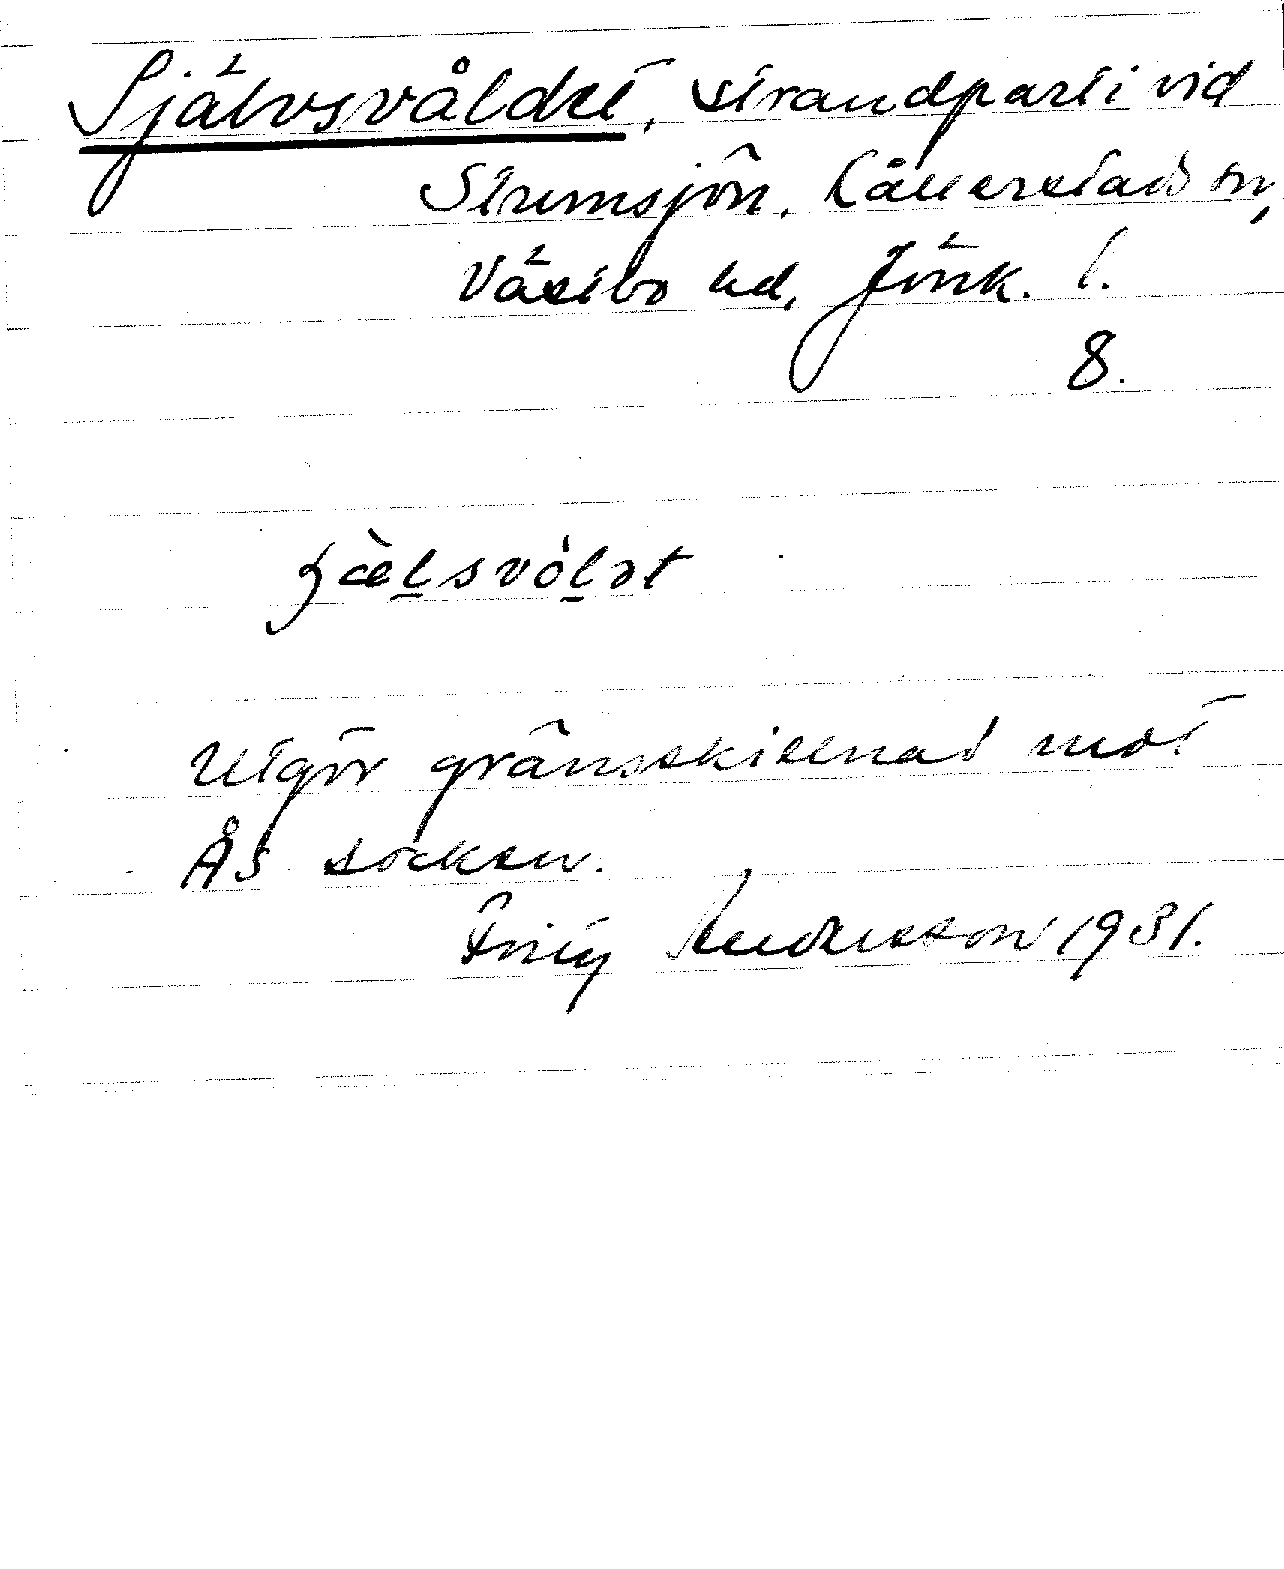 Självsvåldet, strandparti vid
Strumsjön. Källerstads sn,
Västbo hd, Jönk. l.
8.
ʒæl̠svòl̠ət
Utgör gränsskillnad mot
Ås socken.
Andersson 1931.